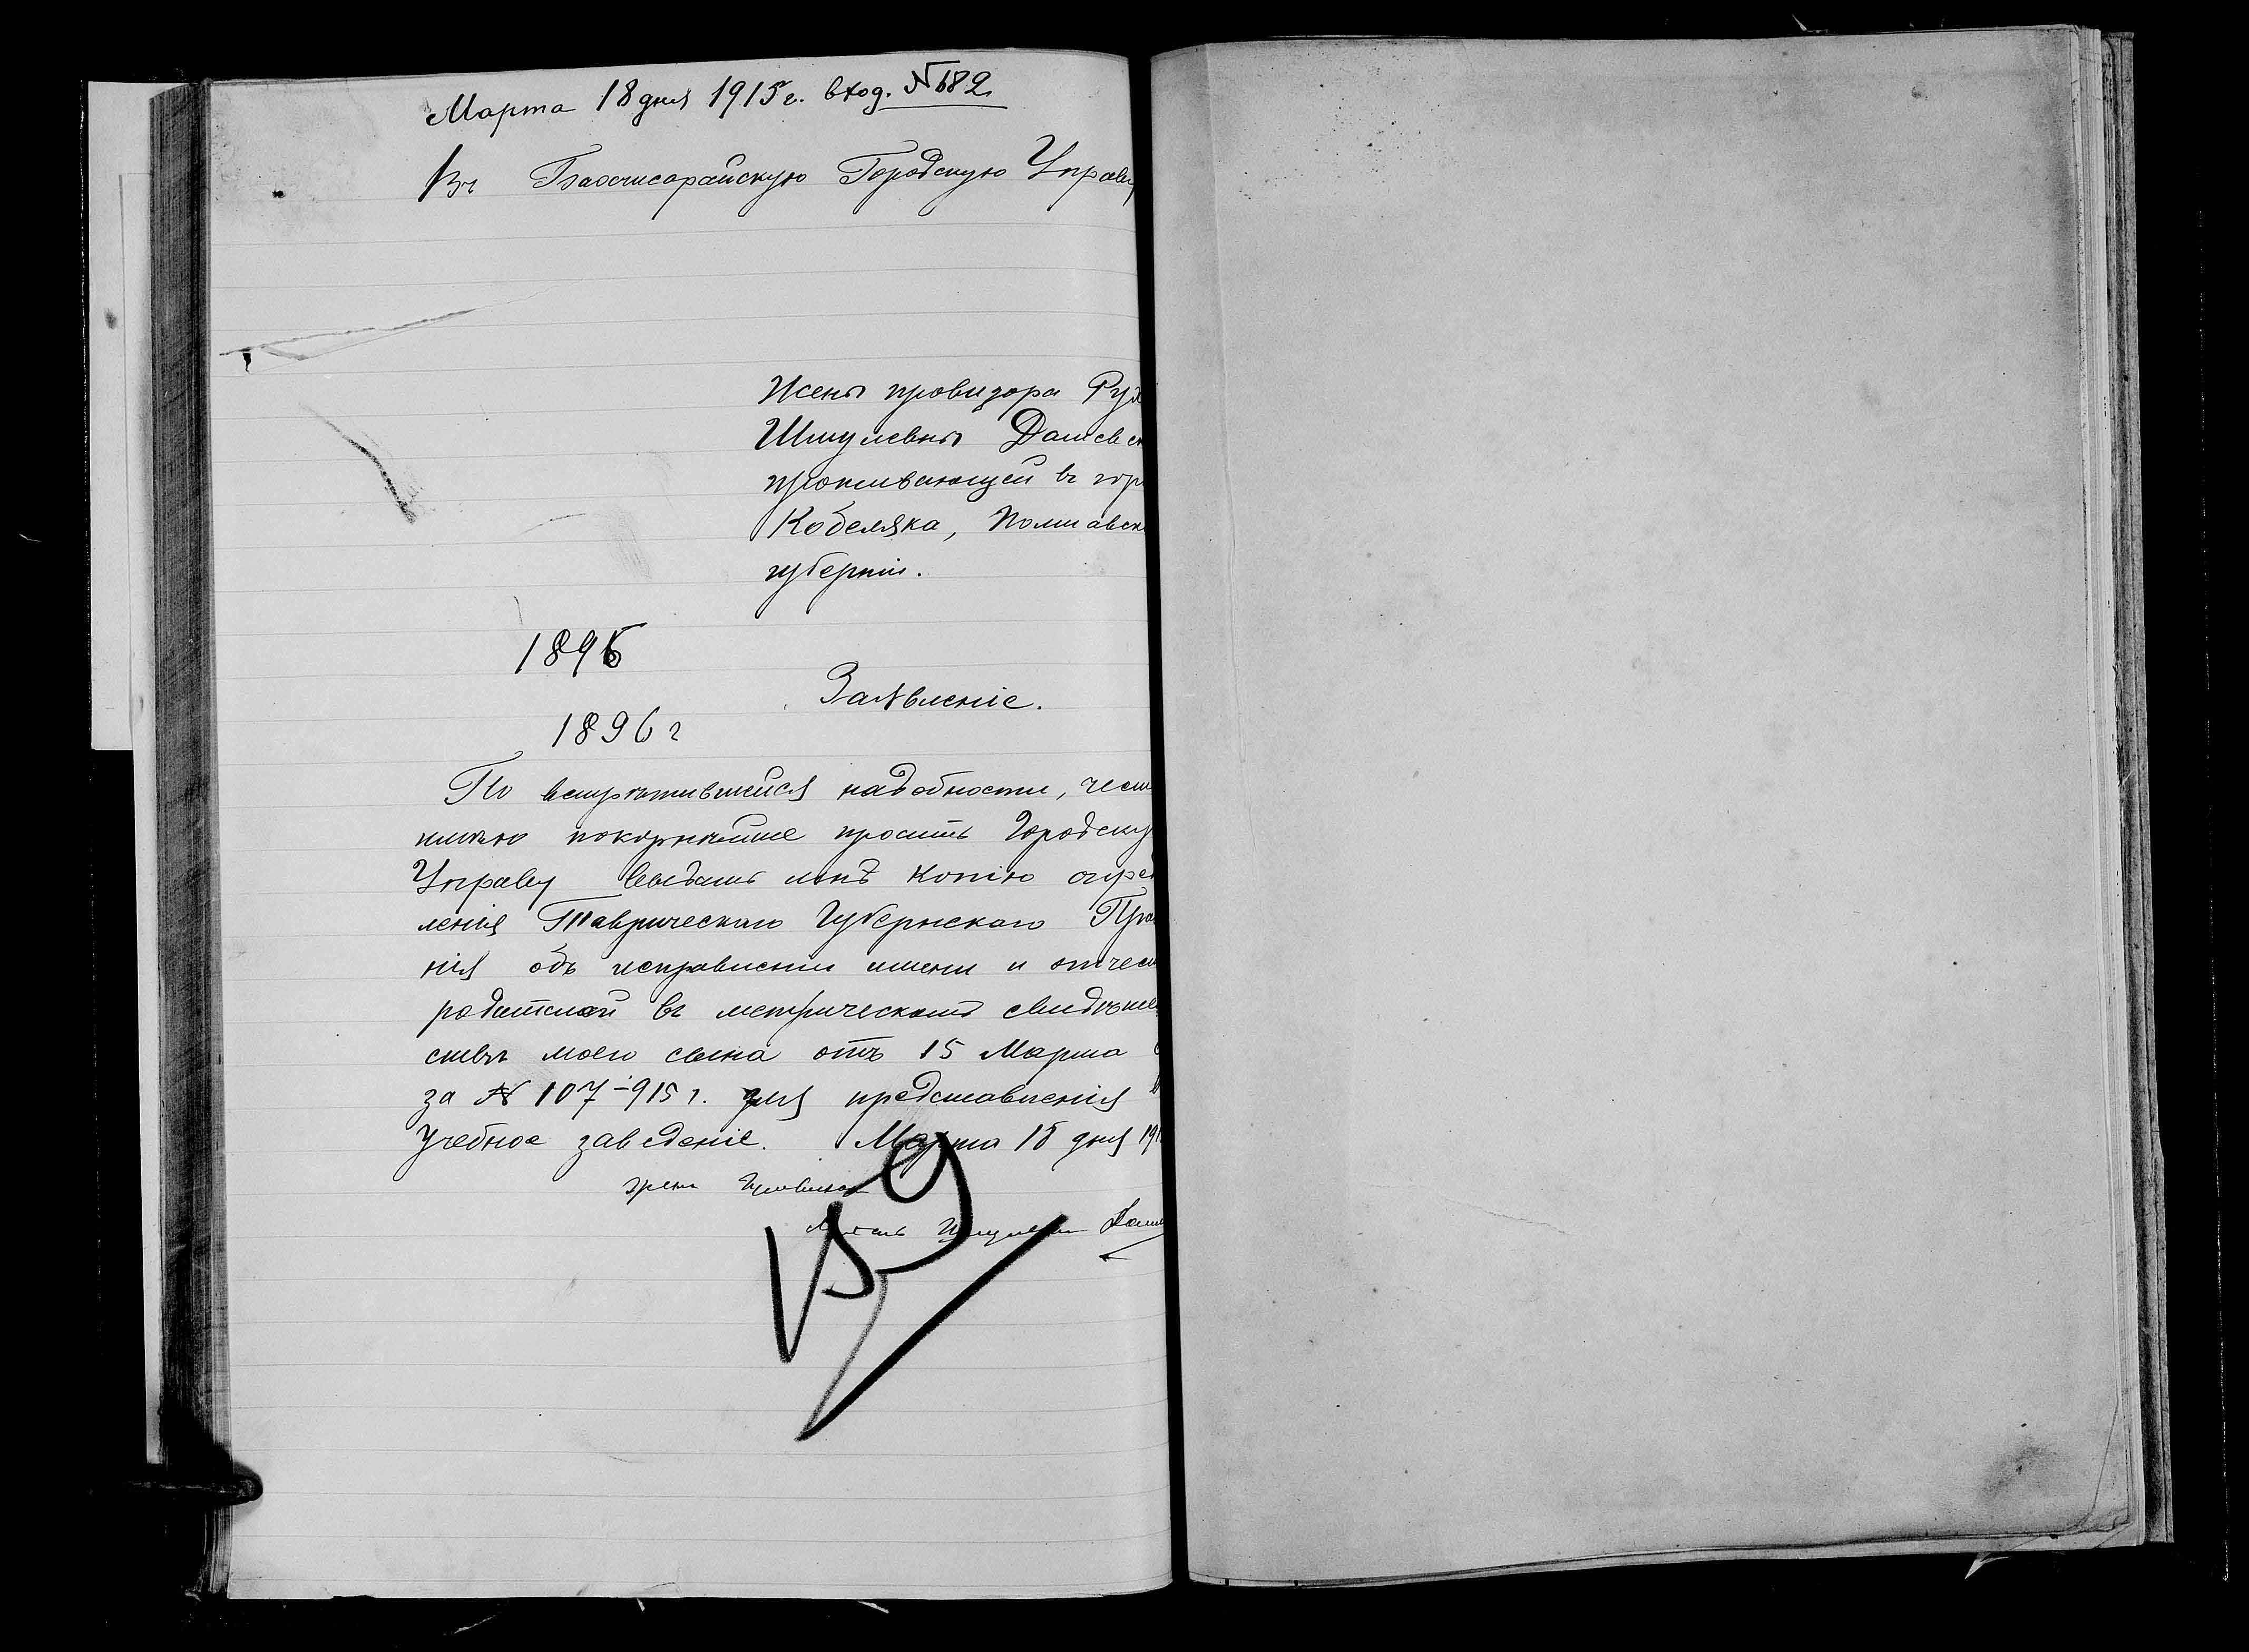 Марта 18 дня 1915 г. вход. №682
Въ Бахчисарайскую Городскую Управу
Жены провизора Рух
Шмулевны Дашевск
проживающей въ гор
Кобеляка, Полтавск
губернiи.
1896
Заявленіе.
1896 г
По встрѣтившейся надобности, чест
имѣю покорнѣйше просить Городску
Управу выдать мнѣ копію опред
ленія Таврическаго Губернскаго Прав
нія объ исправленіи имени и отчест
родителей въ метрическомъ свидѣтел
ствѣ моего сына отъ 15 Марта
за № 107-915 г. для представленія в
Учебное заведеніе. Марта 18 дня 191
жена провизора
Даш